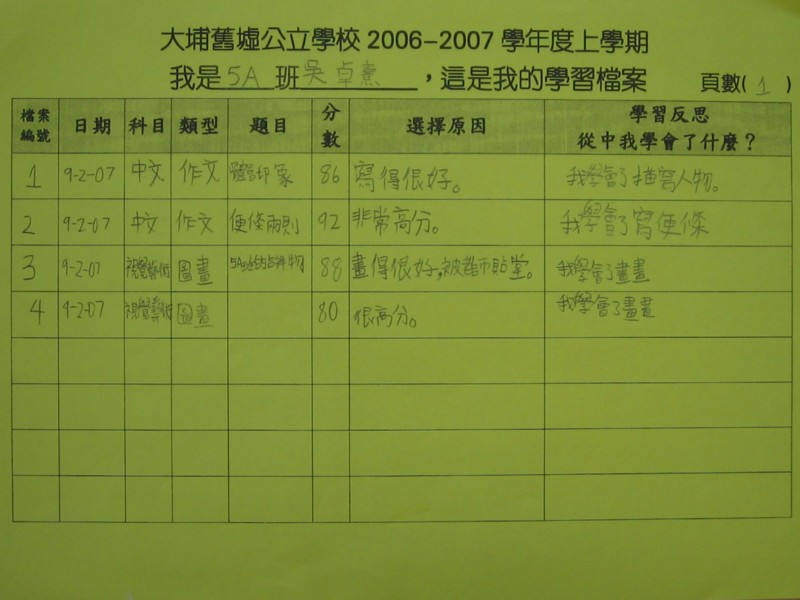 大埔舊墟公立學校 2006-2007 學年度上學期
我是 5A 班 吳卓熹 ，這是我的學習檔案 頁數( 1 )
檔案編號 日期 科目 類型 題目 分數 選擇原因 學習反思 從中我學會了什麼？
1 9-2-07 中文 作文 印象 86 寫得很好。 我學會了描寫人物。
2 9-2-07 中文 作文 便條兩則 92 非常高分。 我學會了寫便條
3 9-2-07 視覺藝術 圖畫 88 畫得很好,被老師貼堂。 我學會了畫畫
4 9-2-07 視覺藝術 圖畫 80 很高分。 我學會了畫畫